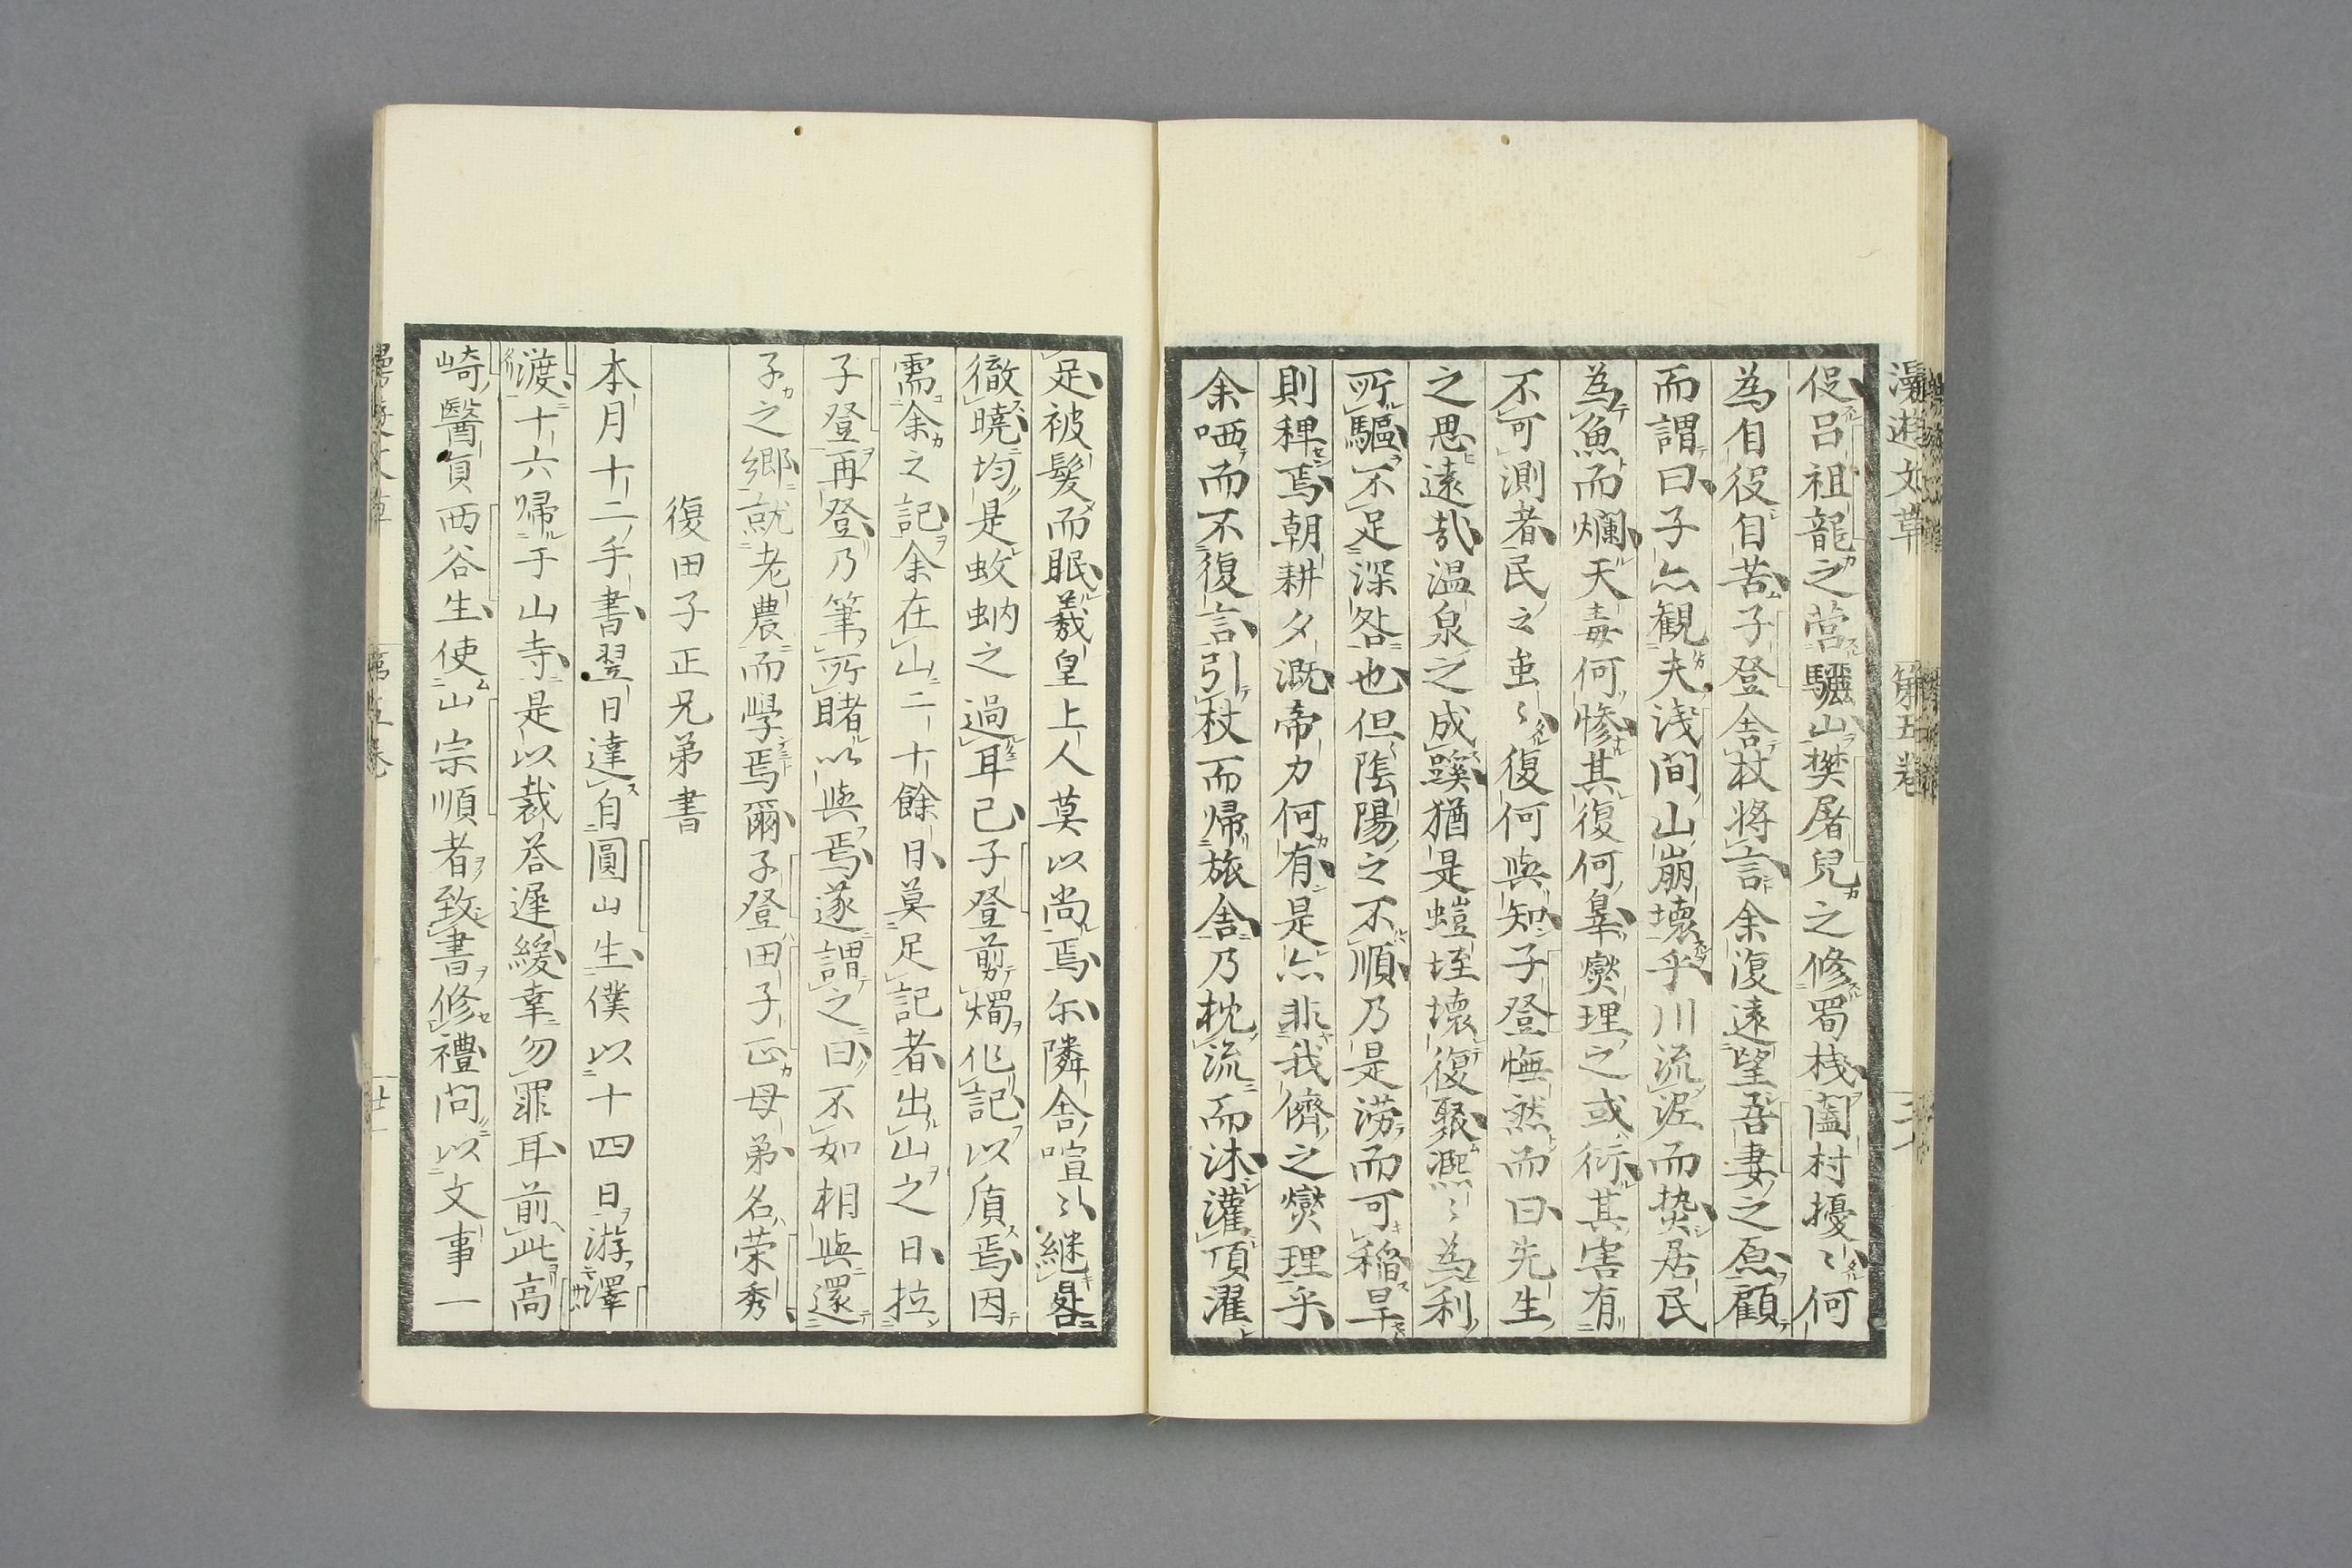 漫遊文草 第五卷
促呂祖龍之営驪山樊屠兒之修蜀棧闔村擾〻何
為自役自苦子登舎杖将言余復遠望吾妻之原顧
而謂曰子亦観夫浅間山崩壊乎川流泥而㷍居民
為魚而爛天毒何惨其復何辠爕理之或衍其害有
不可測者民之蚩〻復何與知子登憮然而曰先生
之思遠哉温泉之成蹊猶是螘垤壊復聚凞〻為利
所驅不足深咎也但隂陽之不順乃是澇而可稲旱
則稗焉朝耕夕溉帝力何有是亦非我儕之爕理乎
余哂而不復言引杖而帰旅舎乃枕流而沐灌頂濯
足被髪而眠羲皇上人莫以尚焉尓隣舎喧〻継晷
徹曉均是蚊蚋之過耳已子登剪燭作記以質焉因
需余之記余在山二十餘日莫足記者出山之日拉
子登再登乃筆所睹以與焉遂謂之曰不如相與還
子之郷就老農而學焉爾子登田子正母弟名荣秀
復田子正兄弟書
本月十二手書翌日達自圓山生僕以十四日游澤
渡十六帰于山寺是以裁荅遲緩幸勿罪耳前此高
崎醫員西谷生使山宗順者致書修禮問以文事一